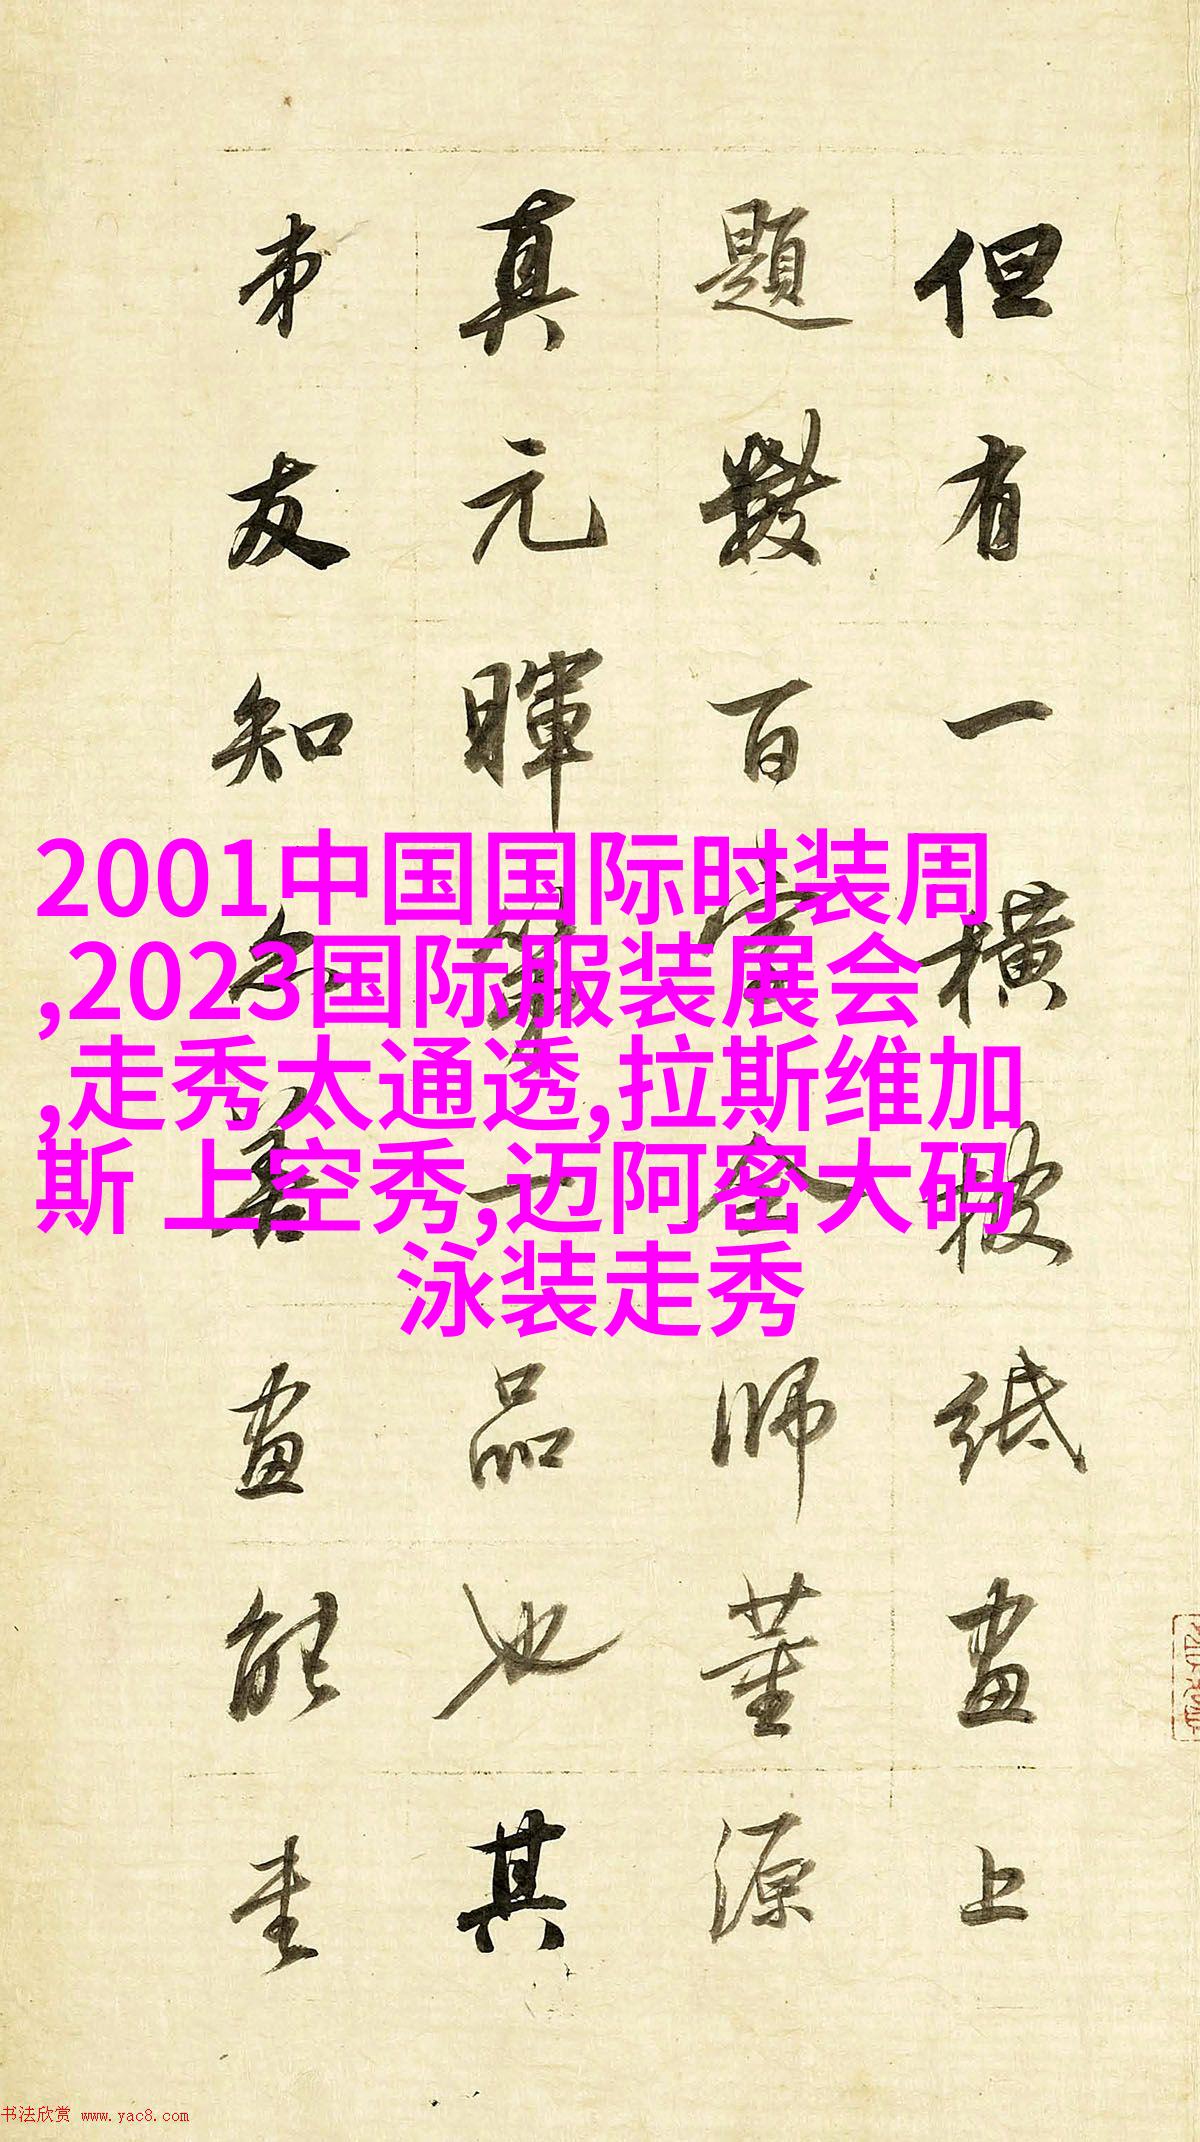 2001中国国际时装周
,2023国际服装展会
,走秀太通透,拉斯维加
斯 上空秀,迈阿密大码
泳装走秀
但有一横披紙畫上
題數百全師董源
真元暉一品也其
弟友知名善畫能
书法欣赏 www.yac8.com